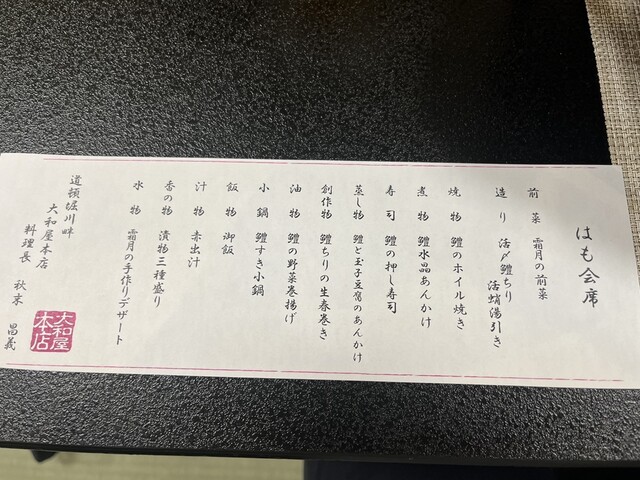 はも会席
前菜 霜月の前菜
造り 活〆鱧ちり
活蛸湯引き
焼物 鱧のホイル焼き
煮物 鱧水晶あんかけ
寿司 鱧の押し寿司
蒸し物 鱧と玉子豆腐のあんかけ
創作物 鱧ちりの生春巻き
油物 鱧の野菜巻揚げ
小鍋 鱧すき小鍋
飯物 御飯
汁物 赤出汁
香の物 漬物三種盛り
水物 霜月の手作りデザート
道頓堀川畔
大和屋本店
料理長 秋末 昌義
大和屋
本店